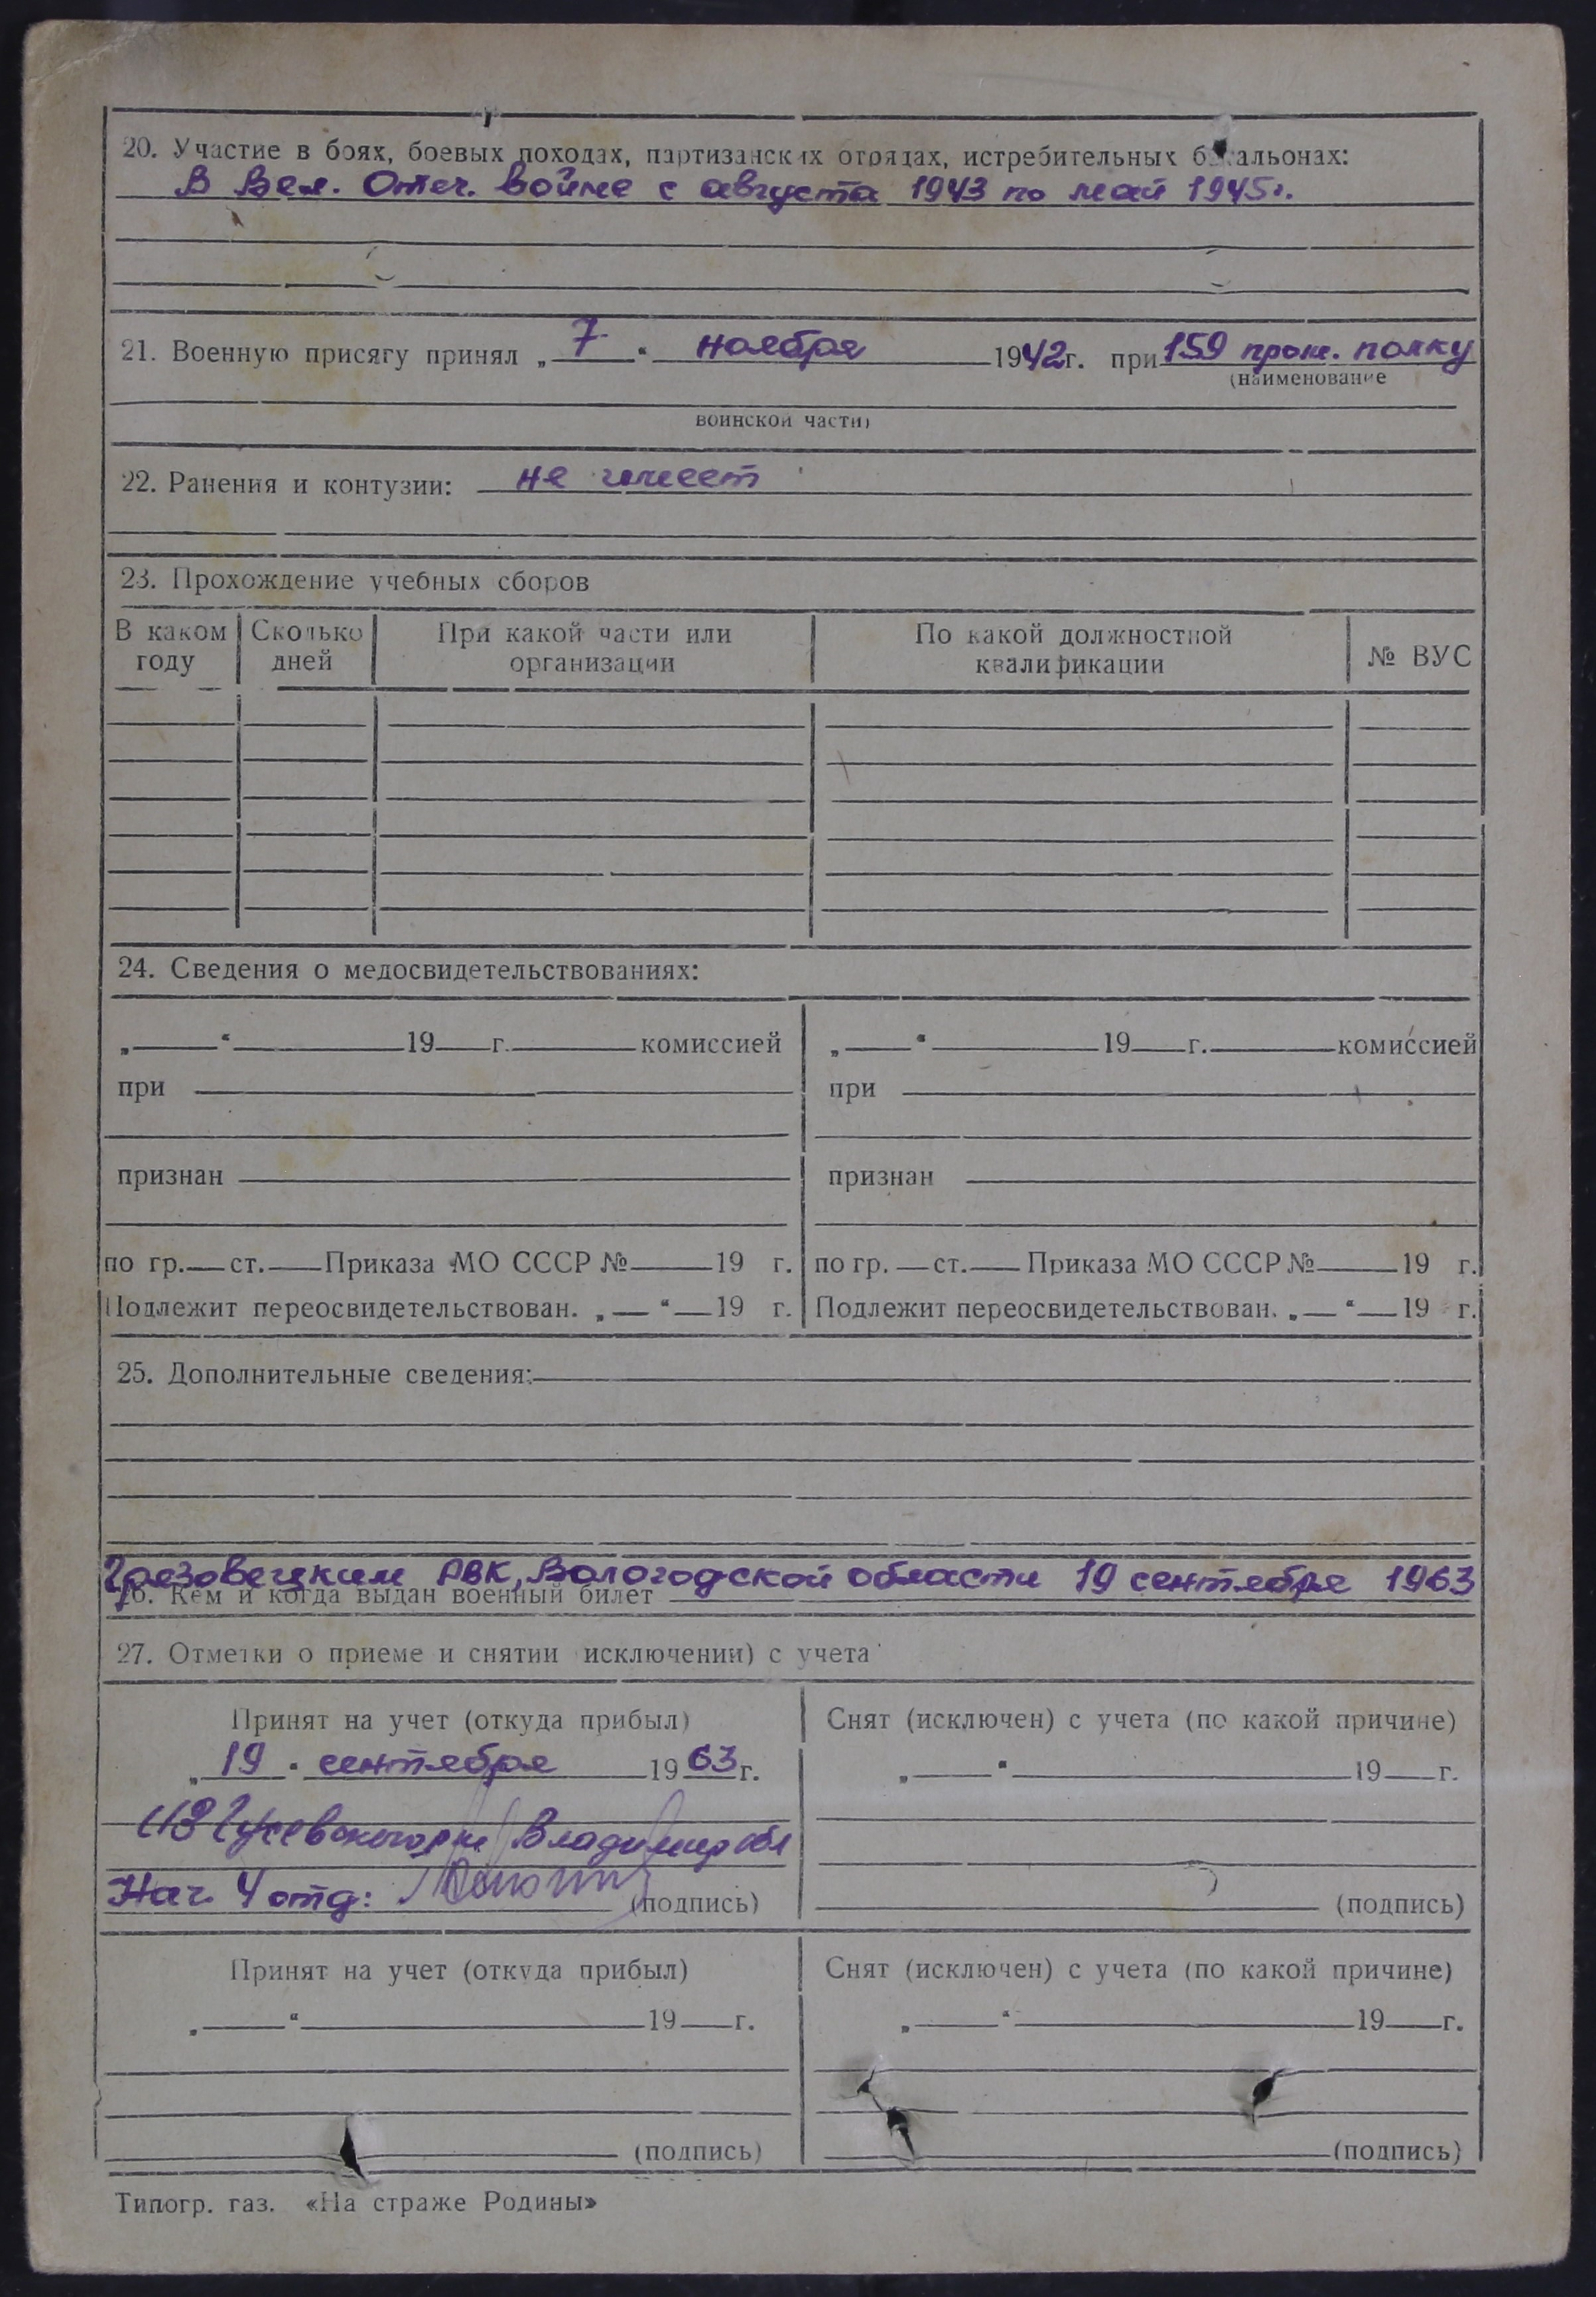 20. Участие в боях, боевых походах, партизанских отрядах, истребительных батальонах:
В Вел. Отеч. войне с августа 1943 по май 1945г.
21. Военную присягу принял „ 7 “ ноября 1942г. при 159 прож. полку
(наименование
воинской части)
22. Ранения и контузии: не имеет
23. Прохождение учебных сборов
В каком году Сколько дней При какой части или организации По какой должностной квалификации № ВУС
24. Сведения о медосвидетельствованиях:
„ “ 19 г. комиссией „ “ 19 г. комиссией
при при
признан признан
по гр. ст. Приказа МО СССР № 19 г. по гр. ст. Приказа МО СССР № 19 г.
Подлежит переосвидетельствован. „ “ 19 г. Подлежит переосвидетельствован. „ “ 19 г.
25. Дополнительные сведения:
Грязовецким РВК, Вологодской области 19 сентября 1963
26. Кем и когда выдан военный билет
27. Отметки о приеме и снятии исключении) с учета
Принят на учет (откуда прибыл) Снят (исключен) с учета (по какой причине)
„ 19 “ сентября 1963г. „ “ 19 г.
из Гусевского Владимир обл
Нач. 4 отд: (подпись) (подпись)
Принят на учет (откуда прибыл) Снят (исключен) с учета (по какой причине)
„ “ 19 г. „ “ 19 г.
(подпись) (подпись)
Типогр. газ. «На страже Родины»